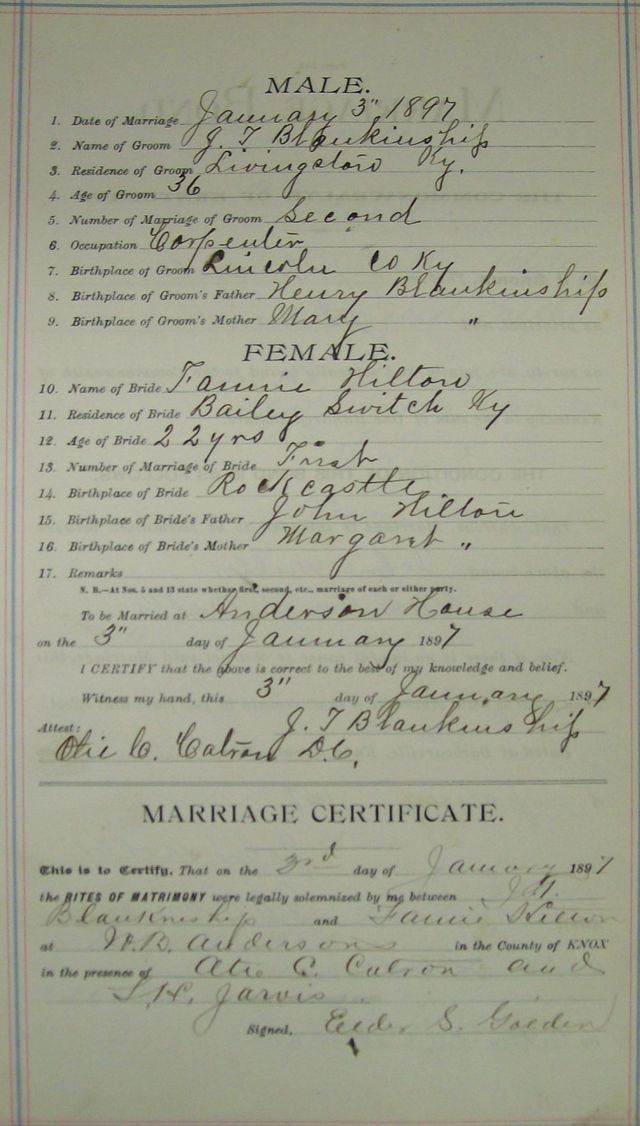 MALE.
1. Date of Marriage January 3" 1897
2. Name of Groom J. T Blankinship
3. Residence of Groom Livingston Ky.
4. Age of Groom 36
5. Number of Marriage of Groom Second
6. Occupation Carpenter
7. Birthplace of Groom Lincoln Co Ky
8. Birthplace of Groom's Father Henry Blankinship
9. Birthplace of Groom's Mother Mary "
FEMALE.
10. Name of Bride Fannie Hilton
11. Residence of Bride Bailey Switch Ky
12. Age of Bride 22 yrs
13. Number of Marriage of Bride First
14. Birthplace of Bride Rockcastle
15. Birthplace of Bride's Father John Hilton
16. Birthplace of Bride's Mother Margaret "
17. Remarks
N. B.—At Nos. 5 and 13 state whether first, second, etc., marriage of each or either party.
To be Married at Anderson House
on the 3" day of January 1897
I CERTIFY that the above is correct to the best of my knowledge and belief.
Witness my hand, this 3" day of January 1897
J. T Blankinship
Attest:
Otie C. Catron D.C.
MARRIAGE CERTIFICATE.
This is to Certify. That on the 3rd day of January 1897
the RITES OF MATRIMONY were legally solemnized by me between J.T.
Blankinship and Fannie Hilton
at W.B. Andersons in the County of KNOX
in the presence of Otie C. Catron and
S.H. Jarvis
Signed, Elder S. Golden